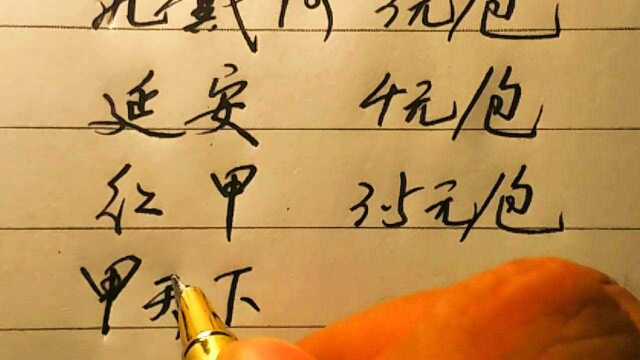 元/包
延安 4元/包
红甲 3.5元/包
甲天下